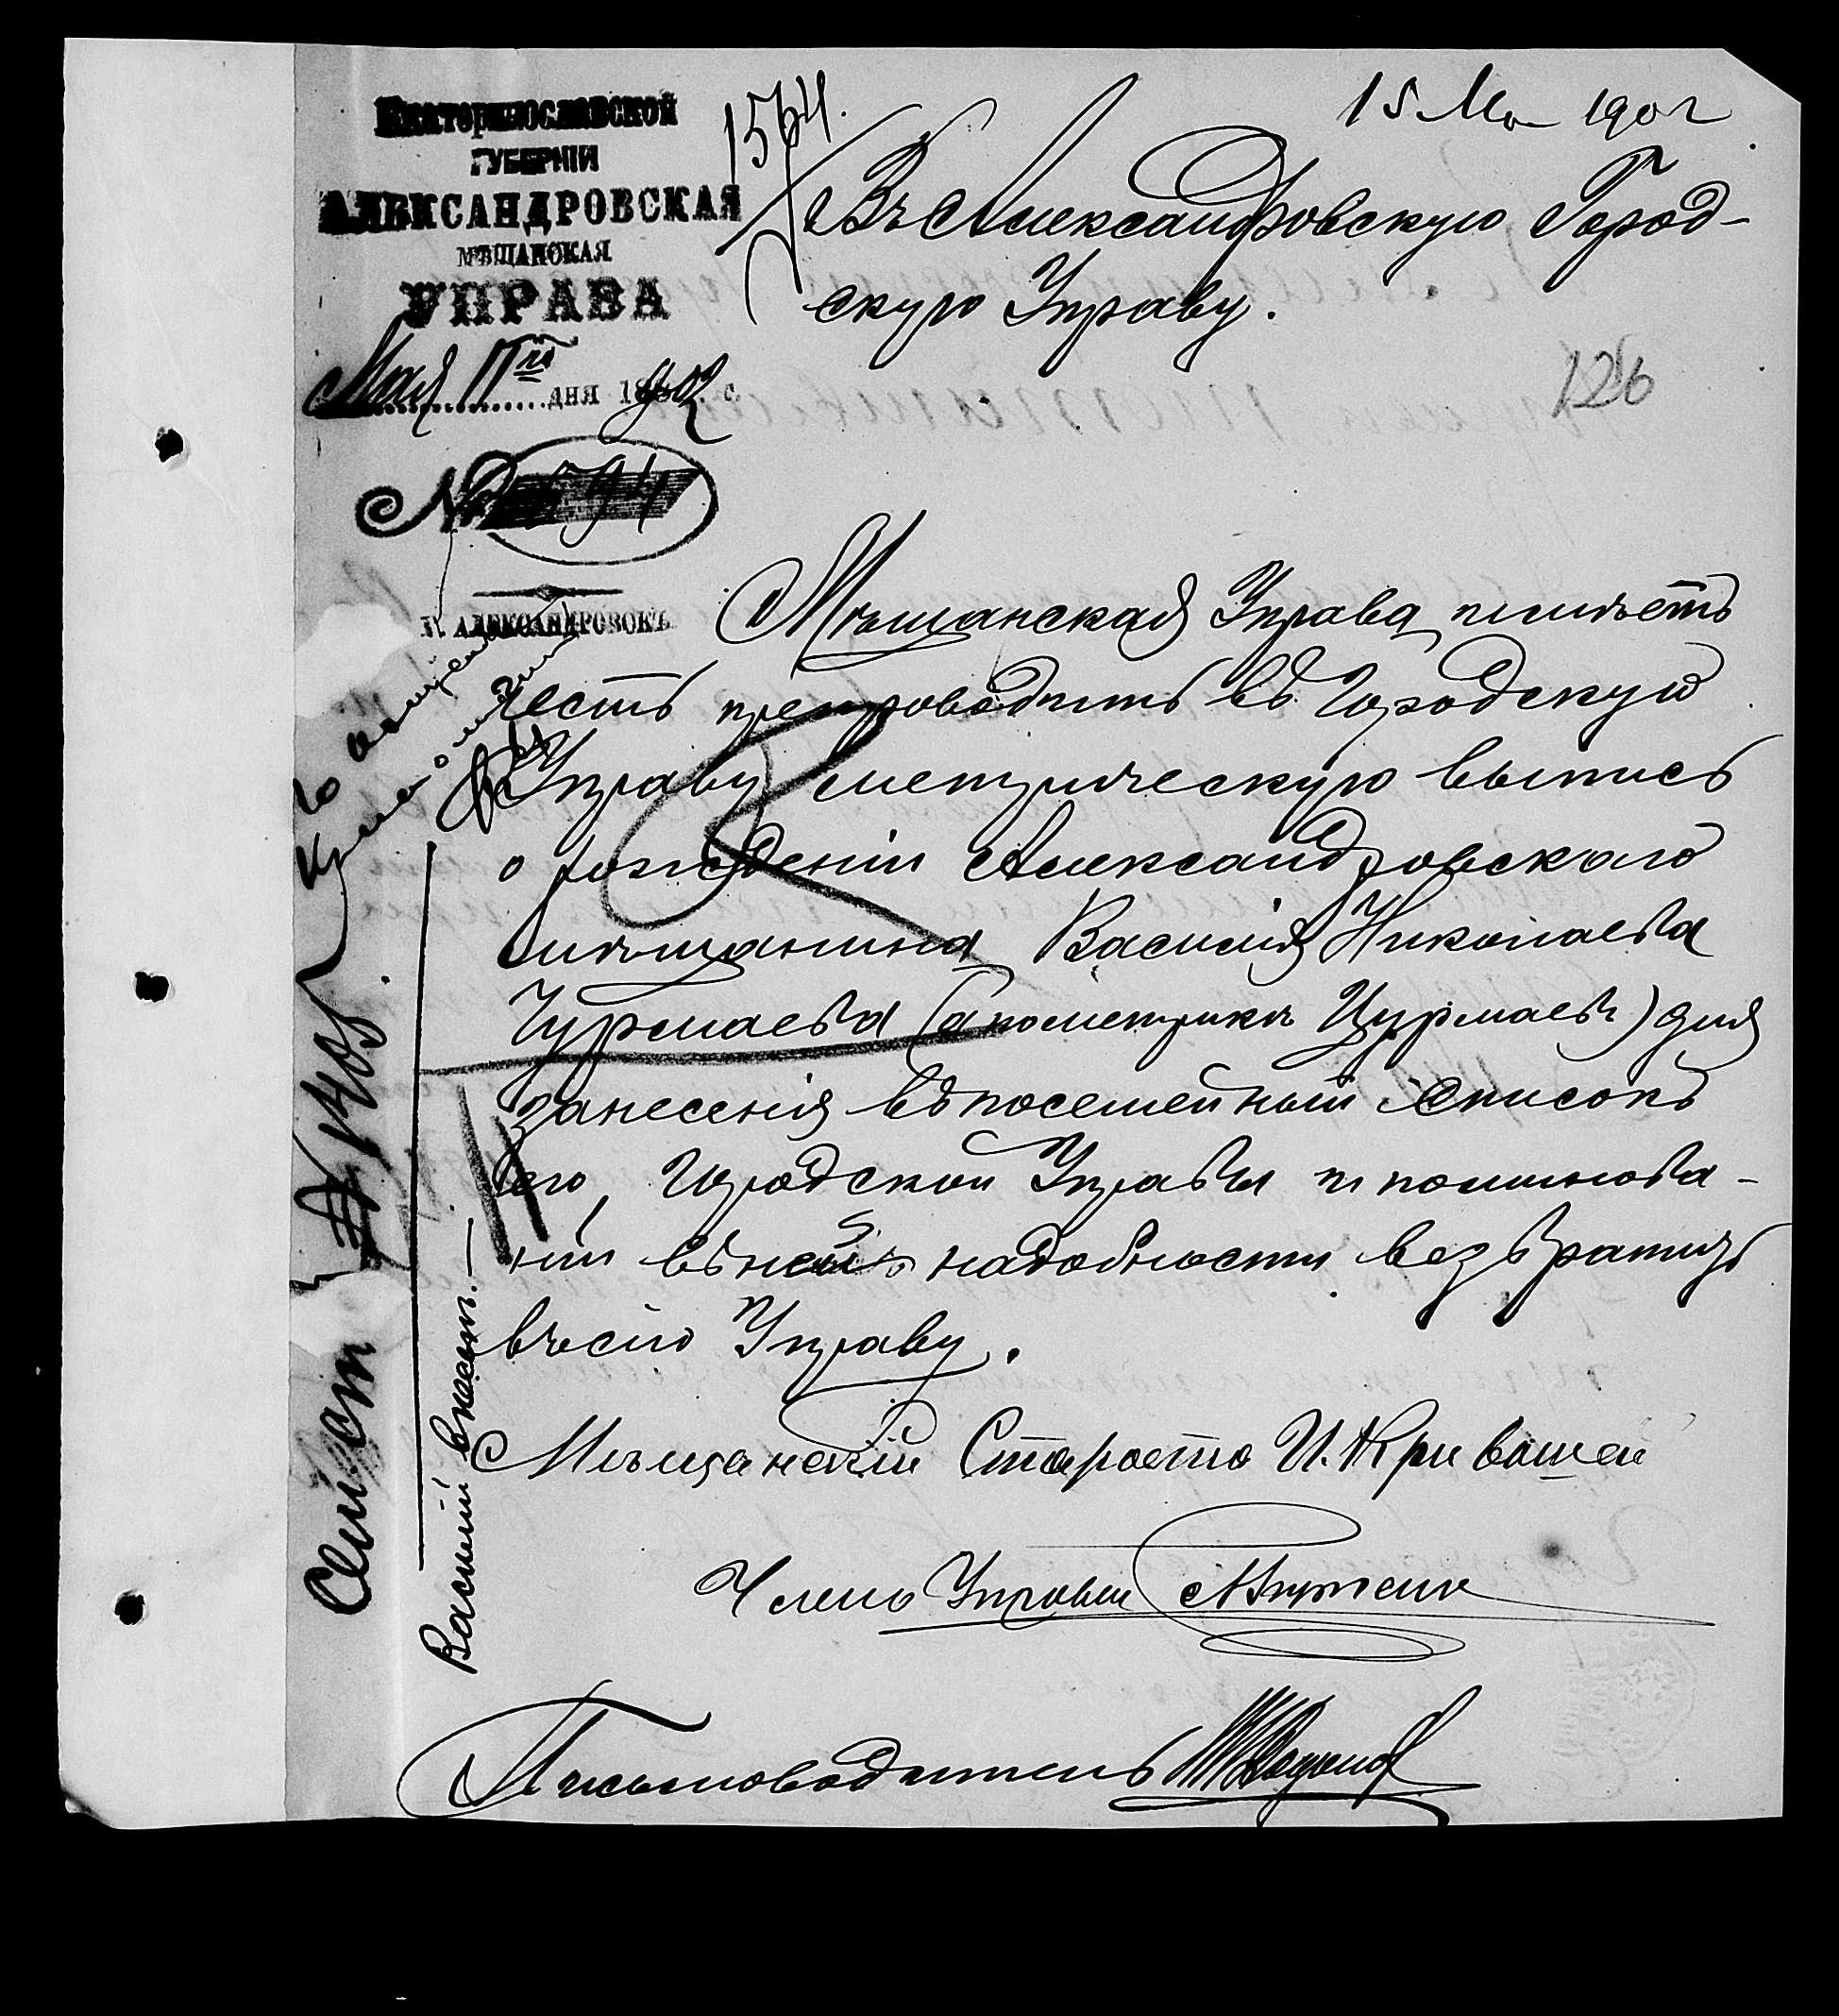 Екатеринославской
ГУБЕРНІИ
АЛЕКСАНДРОВСКАЯ
МѢЩАНСКАЯ
УПРАВА
Мая 11го дня 1902 г.
№ 594
Г. АЛЕКСАНДРОВСКЪ
1564.
15 Ма 1902
Въ Александровскую Город-
скую Управу.
126
Мѣщанская Управа имѣетъ
честь препроводить въ Городскую
Управу метрическую выпись
о рожденіи Александровскаго
мѣщанина Василія Николаева
Чурмаева (а по метрикѣ Цурмаевъ) для
занесенія въ посемейный списокъ
его, Городской Управы и по минова-
ніи въ ней надобности возвратить
въ сію Управу.
Мѣщанскій Староста И. Кривошей
Членъ Управы
Письмоводитель
Василий внесен.